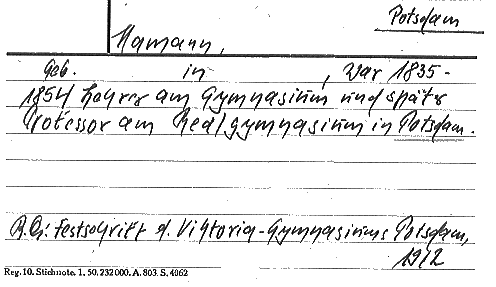 Potsdam
Hamann,
geb. in , war 1835-
1854 Lehrer am Gymnasium und später
Professor am Realgymnasium in Potsdam.
R.Qu: Festschrift d. Viktoria-Gymnasiums Potsdam,
1912
Reg. 10. Stichnote. 1. 50. 232000. A. 803. S. 4062